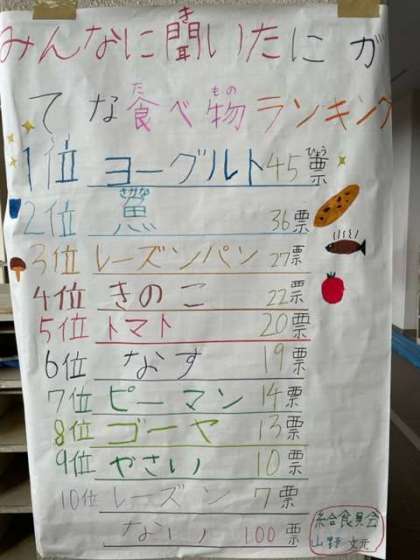 みんなに聞いたにが
てな食べ物ランキング
1位 ヨーグルト 45票
2位 魚 36票
3位 レーズンパン 27票
4位 きのこ 22票
5位 トマト 20票
6位 なす 19票
7位 ピーマン 14票
8位 ゴーヤ 13票
9位 やさい 10票
10位 レーズン 7票
ない 100票
給食員会